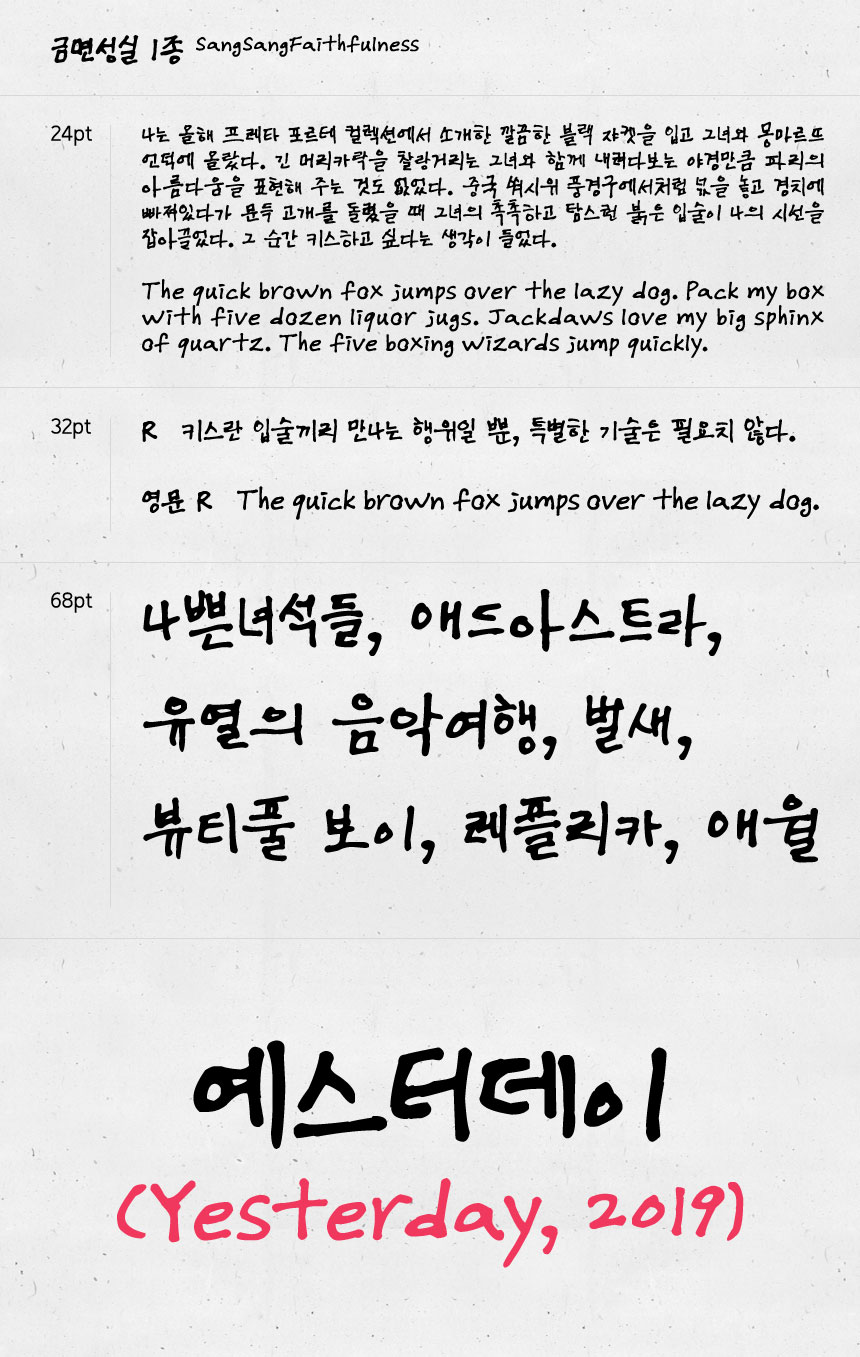 금면성실 1종 SangSangFaithfulness
24pt
나는 올해 프레타 포르테 컬렉션에서 소개한 깔끔한 블랙 쟈켓을 입고 그녀와 몽마르뜨
언덕에 올랐다. 긴 머리카락을 찰랑거리는 그녀와 함께 내려다보는 야경만큼 파리의
아름다움을 표현해 주는 것도 없었다. 중국 쏶시위 풍경구에서처럼 넋을 놓고 경치에
빠져있다가 문득 고개를 돌렸을 때 그녀의 촉촉하고 탐스런 붉은 입술이 나의 시선을
잡아끌었다. 그 순간 키스하고 싶다는 생각이 들었다.
The quick brown fox jumps over the lazy dog. Pack my box
with five dozen liquor jugs. Jackdaws love my big sphinx
of quartz. The five boxing wizards jump quickly.
32pt
R 키스란 입술끼리 만나는 행위일 뿐, 특별한 기술은 필요치 않다.
영문 R The quick brown fox jumps over the lazy dog.
68pt
나쁜녀석들, 애드아스트라,
유열의 음악여행, 벌새,
뷰티풀 보이, 레플리카, 애월
예스터데이
(Yesterday, 2019)